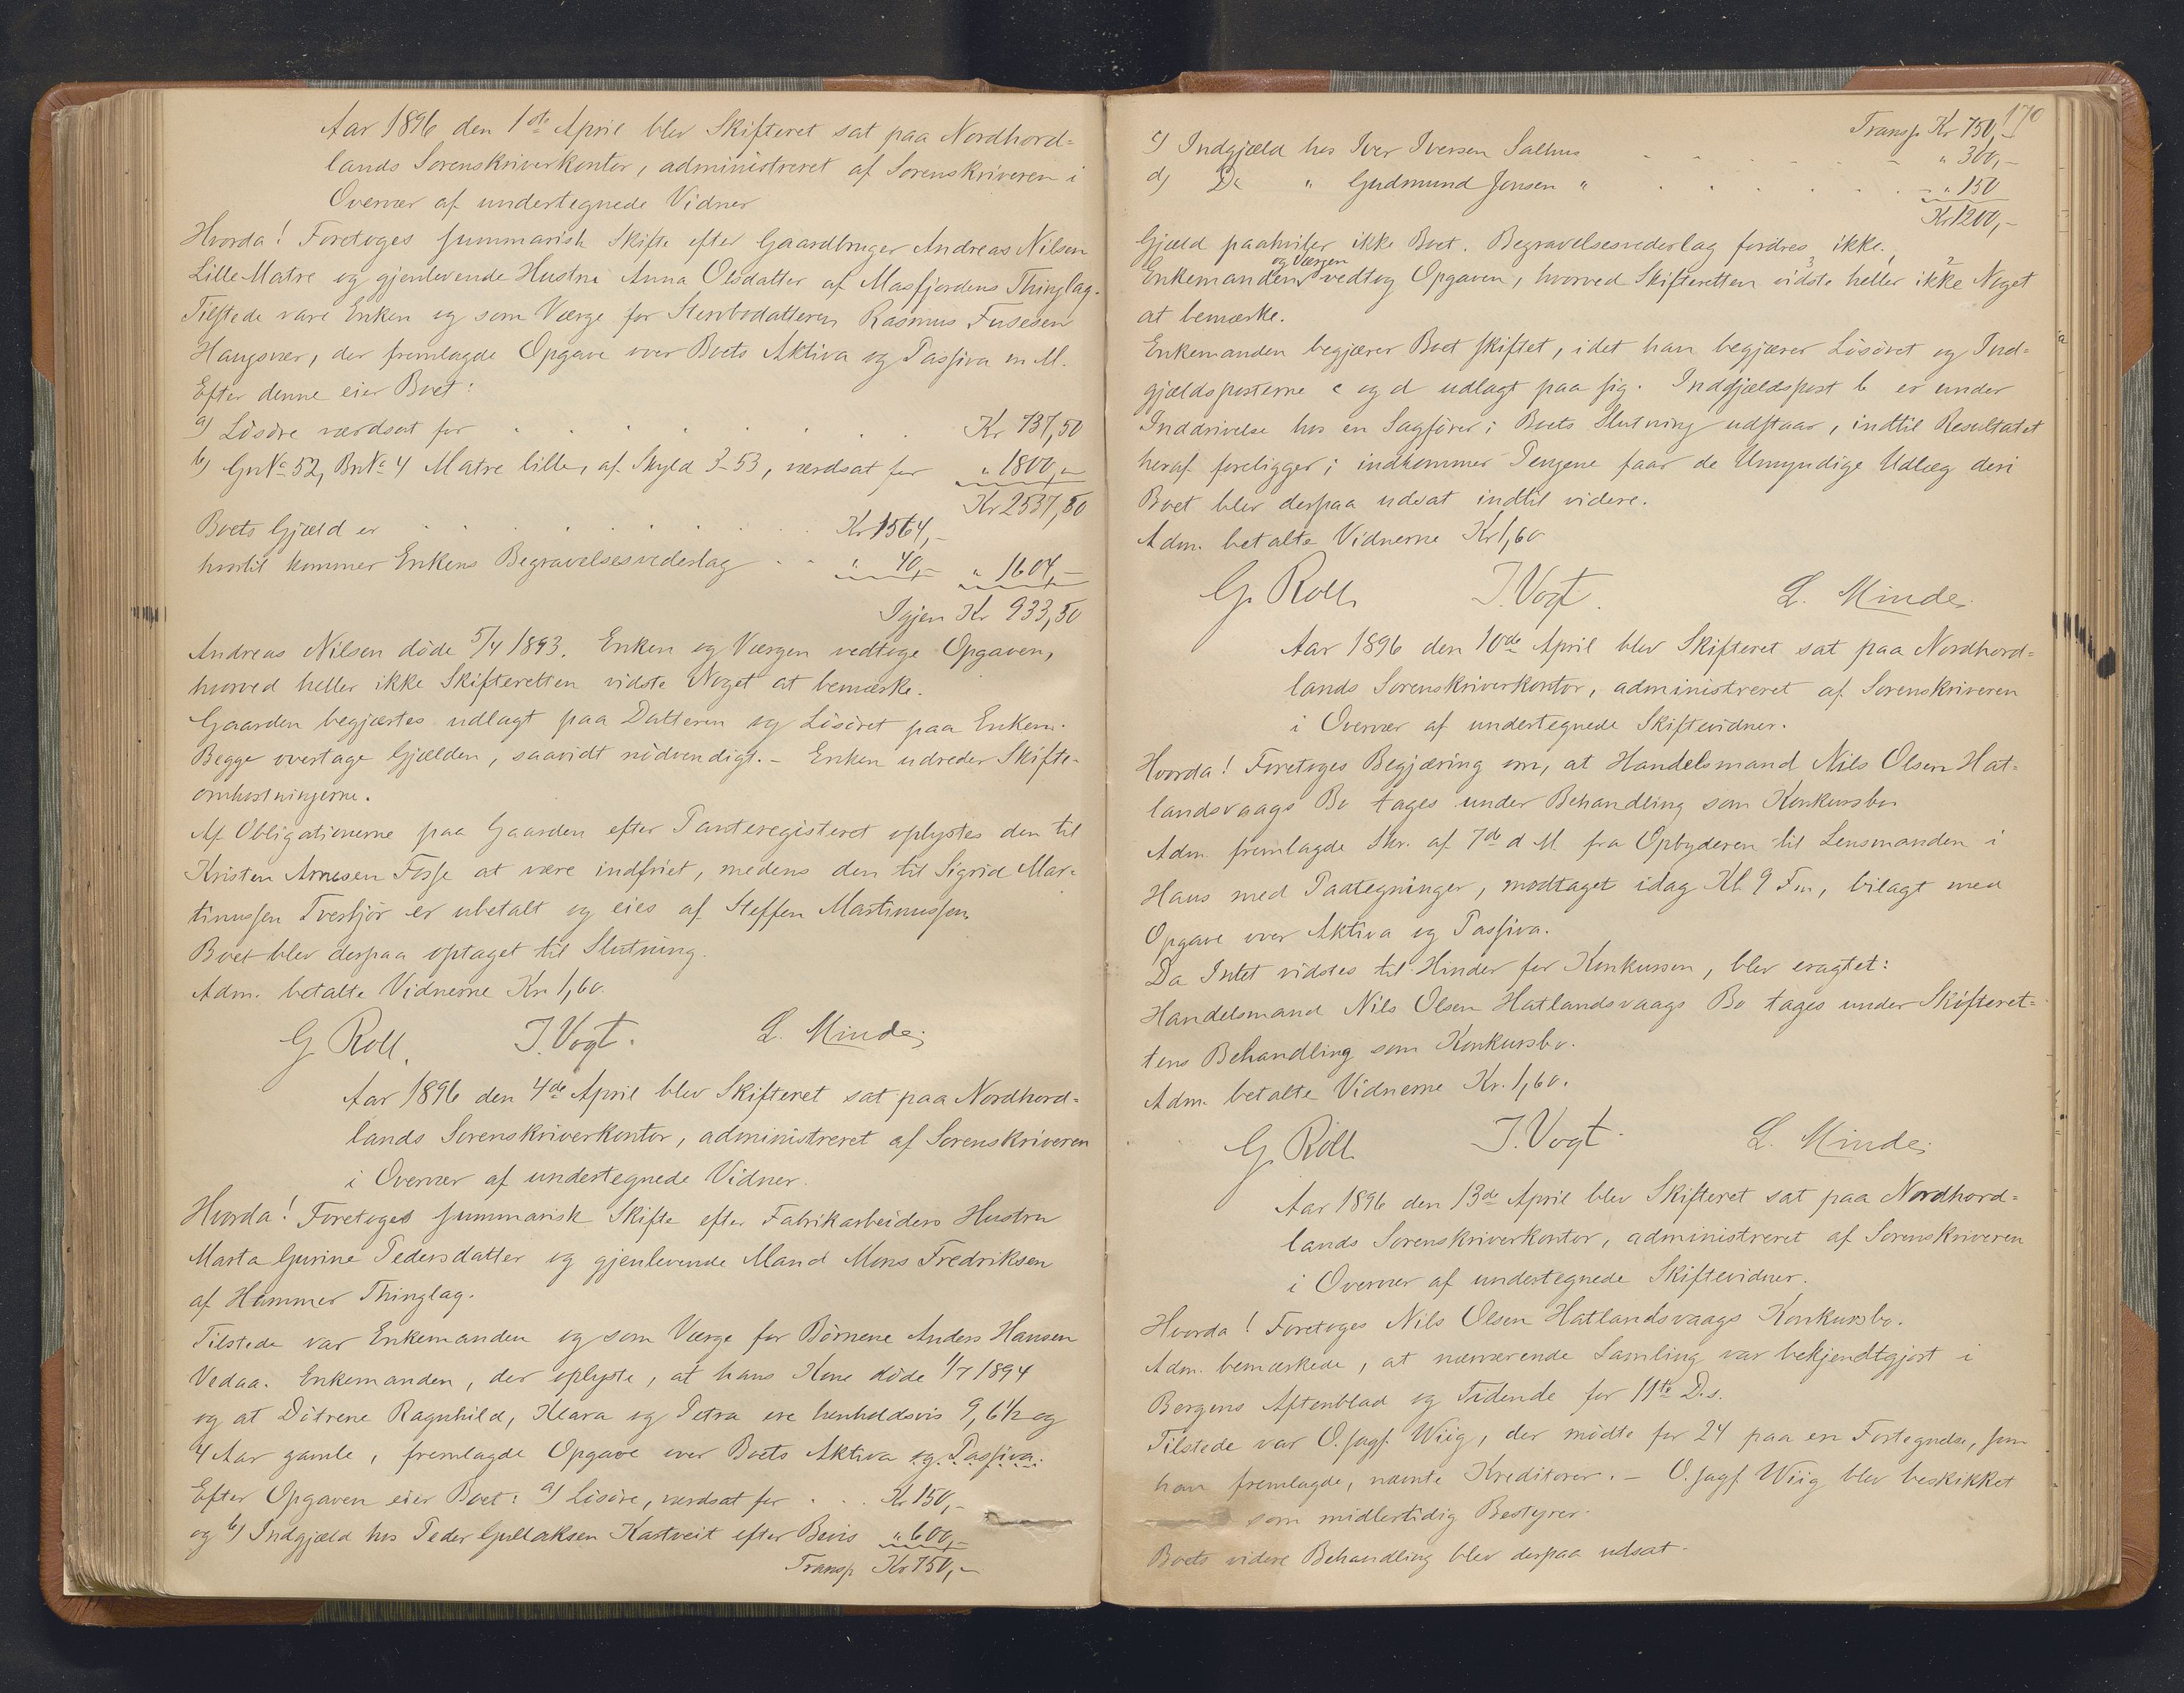 Aar 1896 den 1ste April blev Skifteret sat paa Nordhord=
lands Sorenskriverkontor, administreret af Sorenskriveren i
Overvær af undertegnede Vidner
Hvorda! Foretoges summarisk Skifte efter Gaardbruger Andreas Nilsen
Lille Matre og gjenlevende Hustru Anna Olsdatter af Masfjordens Thinglag.
Tilstede vare Enken og som Værge for Stervbodatteren Rasmus
Haugsvær, der fremlagde Opgave over Boets Aktiva og Passiva m M.
Efter denne eier Boet:
a) Løsøre værdsat for . . . . . . . . Kr 737,50
b) GrNo 52, BrNo 4 Matre lille, af Skyld 3-53, værdsat for " 1800,-
Kr 2537,50
Boets Gjæld er . . . . . . . Kr 1564,-
hvortil kommer Enkens Begravelsesvederlag . . " 40,- " 1604,-
Igjen Kr 933,50
Andreas Nilsen døde 5/4 1893. Enken og Værgen vedtoge Opgaven,
hvorved heller ikke Skifteretten vidste Noget at bemærke.
Gaarden begjærtes udlagt paa Datteren og Løsøret paa Enken.
Begge overtage Gjælden, saavidt nødvendigt. - Enken udreder Skifte-
omkostningerne.
Af Obligationerne paa Gaarden efter Panteregisteret oplystes den til
Kristen Arnesen Fosse at være indfriet, medens den til Sigrid Mar=
tinussen Tverfjor er ubetalt og eies af Steffen Martinussen
Boet blev derpaa optaget til Slutning.
Adm. betalte Vidnerne Kr. 1,60.
G Roll. J. Vogt. L. Minde;
Aar 1896 den 4de April blev Skifteret sat paa Nordhord=
lands Sorenskriverkontor, administreret af Sorenskriveren
i Overvær af undertegnede Vidner.
Hvorda! Foretoges summarisk Skifte efter Fabrikarbeiders Hustru
Marta Gurine Pedersdatter og gjenlevende Mand Mons Fredriksen
af Hammer Thinglag.
Tilstede var Enkemanden og som Værge for Børnene Anders Hansen
Vedaa. Enkemanden, der oplyste, at hans Kone døde 1/7 1894
og at Døtrene Ragnhild, Klara og Petra ere henholdsvis 9, 6 1/2 og
4 Aar gamle, fremlagde Opgave over Boets Aktiva og Passiva.
Efter Opgaven eier Boet: a) Løsøre, værdsat for . . . Kr 150,-
og b) Indgjæld hos Peder Gullaksen Kastveit efter Bevis " 600,-
Transp Kr 750,-
170
Transp Kr 750,-
c) Indgjæld hos Iver Iversen Salhus . . . . . " 300,-
d) Do " Gudmund Jensen " . . . . . . " 150
Kr 1200,-
Gjæld paahviler ikke Boet. Begravelsesvederlag fordres ikke.
og Værgen
Enkemanden vedtog Opgaven, hvorved Skifteretten vidste heller ikke Noget
at bemærke.
Enkemanden begjærer Boet skiftet, idet han begjærer Løsøret og Ind=
gjældsposterne c og d udlagt paa sig. Indgjældspost b er under
Inddrivelse hos en Sagfører; Boets Slutning udstaar, indtil Resultatet
heraf foreligger; indkommer Pengene faar de Umyndige Udlæg deri
Boet blev derpaa udsat indtil videre.
Adm. betalte Vidnerne Kr 1,60
G. Roll J. Vogt. L. Minde;
Aar 1896 den 10de April blev Skifteret sat paa Nordhord=
lands Sorenskriverkontor, administreret af Sorenskriveren
i Overvær af undertegnede Skiftevidner.
Hvorda! Foretoges Begjæring om, at Handelsmand Nils Olsen Hat=
landsvaags Bo tages under Behandling som Konkursbo
Adm. fremlagde Skr. af 7de d M fra Opbyderen til Lensmanden i
Haus med Paategninger, modtaget idag Kl. 9 Fm, bilagt med
Opgave over Aktiva og Passiva.
Da Intet vidstes til Hinder for Konkursen, blev eragtet:
Handelsmand Nils Olsen Hatlandsvaags Bo tages under Skifteret=
tens Behandling som Konkursbo.
Adm. betalte Vidnerne Kr. 1,60.
G. Roll J. Vogt. L. Minde;
Aar 1896 den 13de April blev Skifteret sat paa Nordhord=
lands Sorenskriverkontor, administreret af Sorenskriveren
i Overvær af undertegnede Skiftevidner.
Hvorda! Foretoges Nils Olsen Hatlandsvaags Konkursbo.
Adm. bemærkede, at nærværende Samling var bekjendtgjort i
Bergens Aftenblad og Tidende for 11te D.s.
Tilstede var O.sagf. Wiig, der mødte for 24 paa en Fortegnelse, som
han fremlagde, nævnte Kreditorer. - O.sagf Wiig blev beskikket
som midlertidig Bestyrer.
Boets videre Behandling blev derpaa udsat.